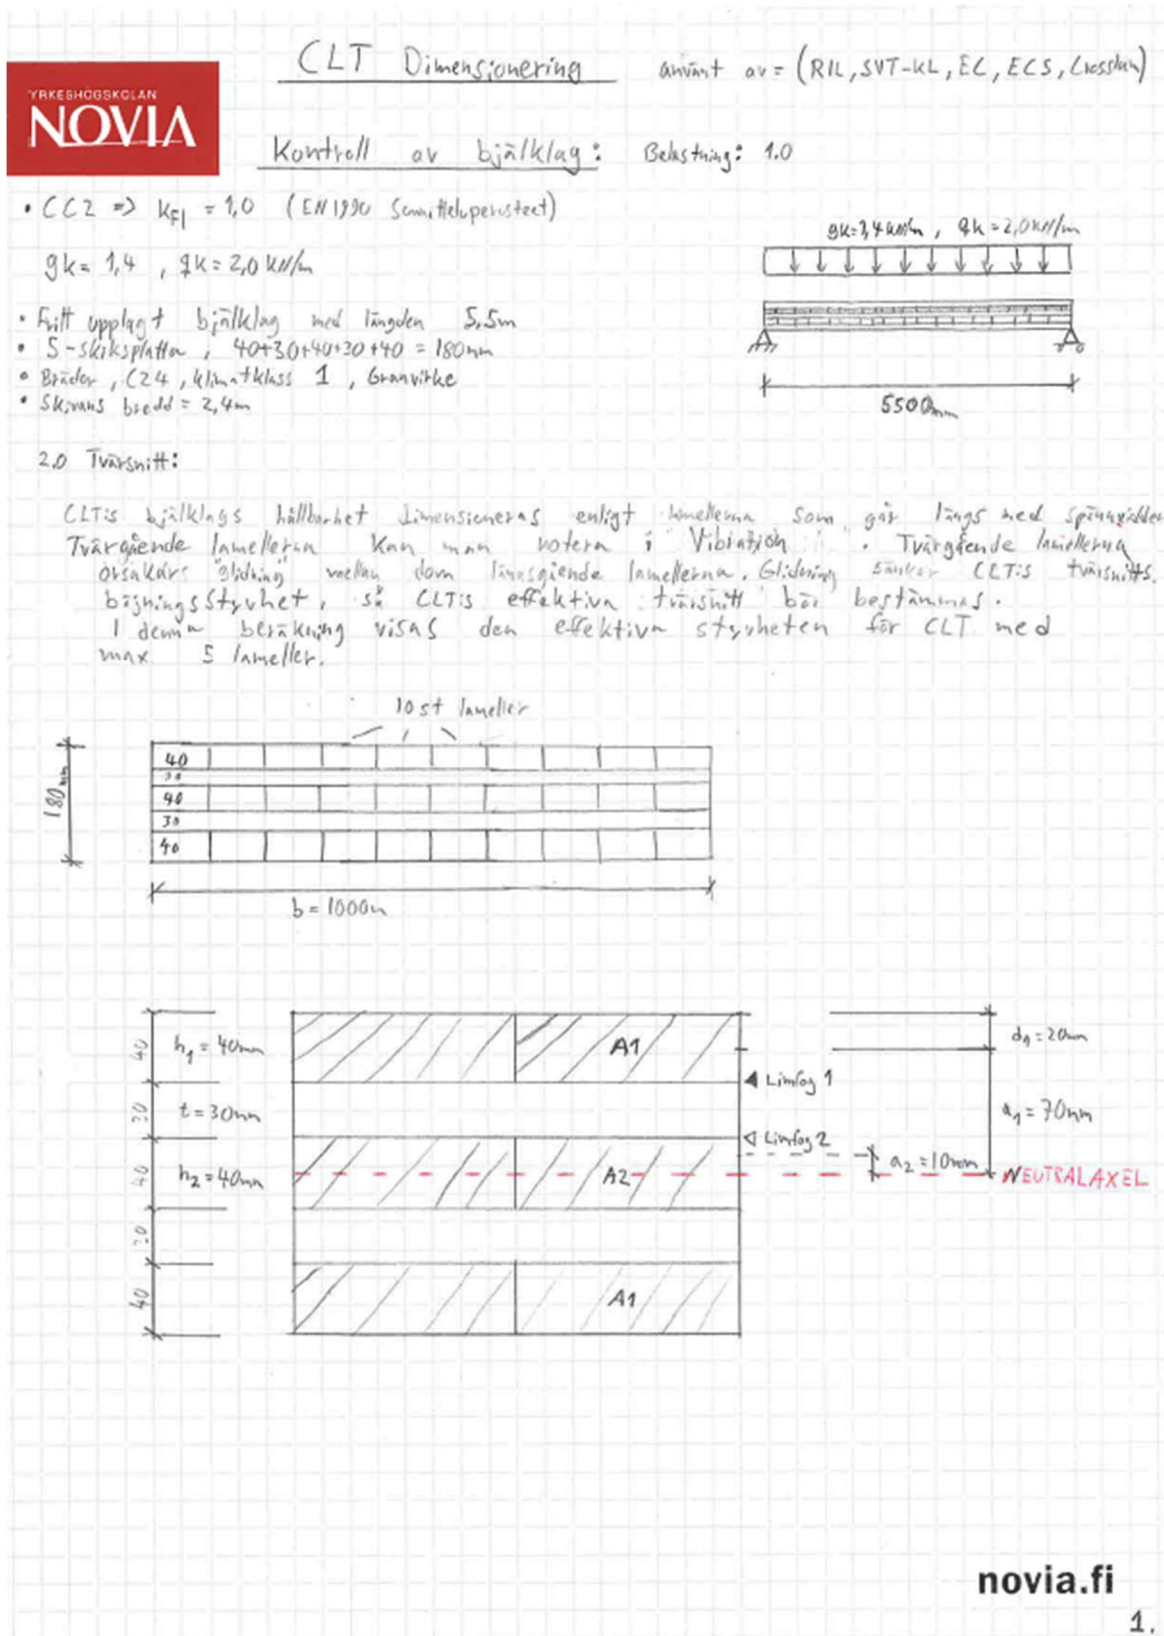 CLT Dimensionering använt av = (RIL, SVT-KL, EC, EC5, Crosslam)
YRKESHÖGSKOLAN
NOVIA
Kontroll av bjälklag: Belastning: 1.0
• CC2 => KFI = 1,0 (EN 1990 Suunitteluperusteet)
gk = 1,4 , qk = 2,0 kN/m
gk=1,4 kN/m , qk=2,0 kN/m
• Fritt upplagt bjälklag med längden 5,5m
• 5-skiksplatta , 40+30+40+30+40 = 180mm
• Brädor, C24, klimatklass 1, Granvirke
• Skivans bredd = 2,4m
5500mm
2.0 Tvärsnitt:
CLT:s bjälklags hållbarhet dimensioneras enligt lamellerna som går längs med spännvidden
Tvärgående lamellerna kan man notera i Vibration . Tvärgående lamellerna
orsakar "glidning" mellan dom längsgående lamellerna. Glidning sänker CLT:s tvärsnitts.
böjningsstyvhet, så CLT:s effektiva tvärsnitt bör bestämmas.
I denna beräkning visas den effektiva styvheten för CLT med
max 5 lameller.
10 st lameller
180mm
40
30
40
30
40
b = 1000m
40
h1 = 40mm
A1
d1 = 20mm
Limfog 1
30
t = 30mm
a1 = 70mm
Limfog 2
40
h2 = 40mm
A2
a2 = 10mm
NEUTRALAXEL
30
40
A1
novia.fi
1.